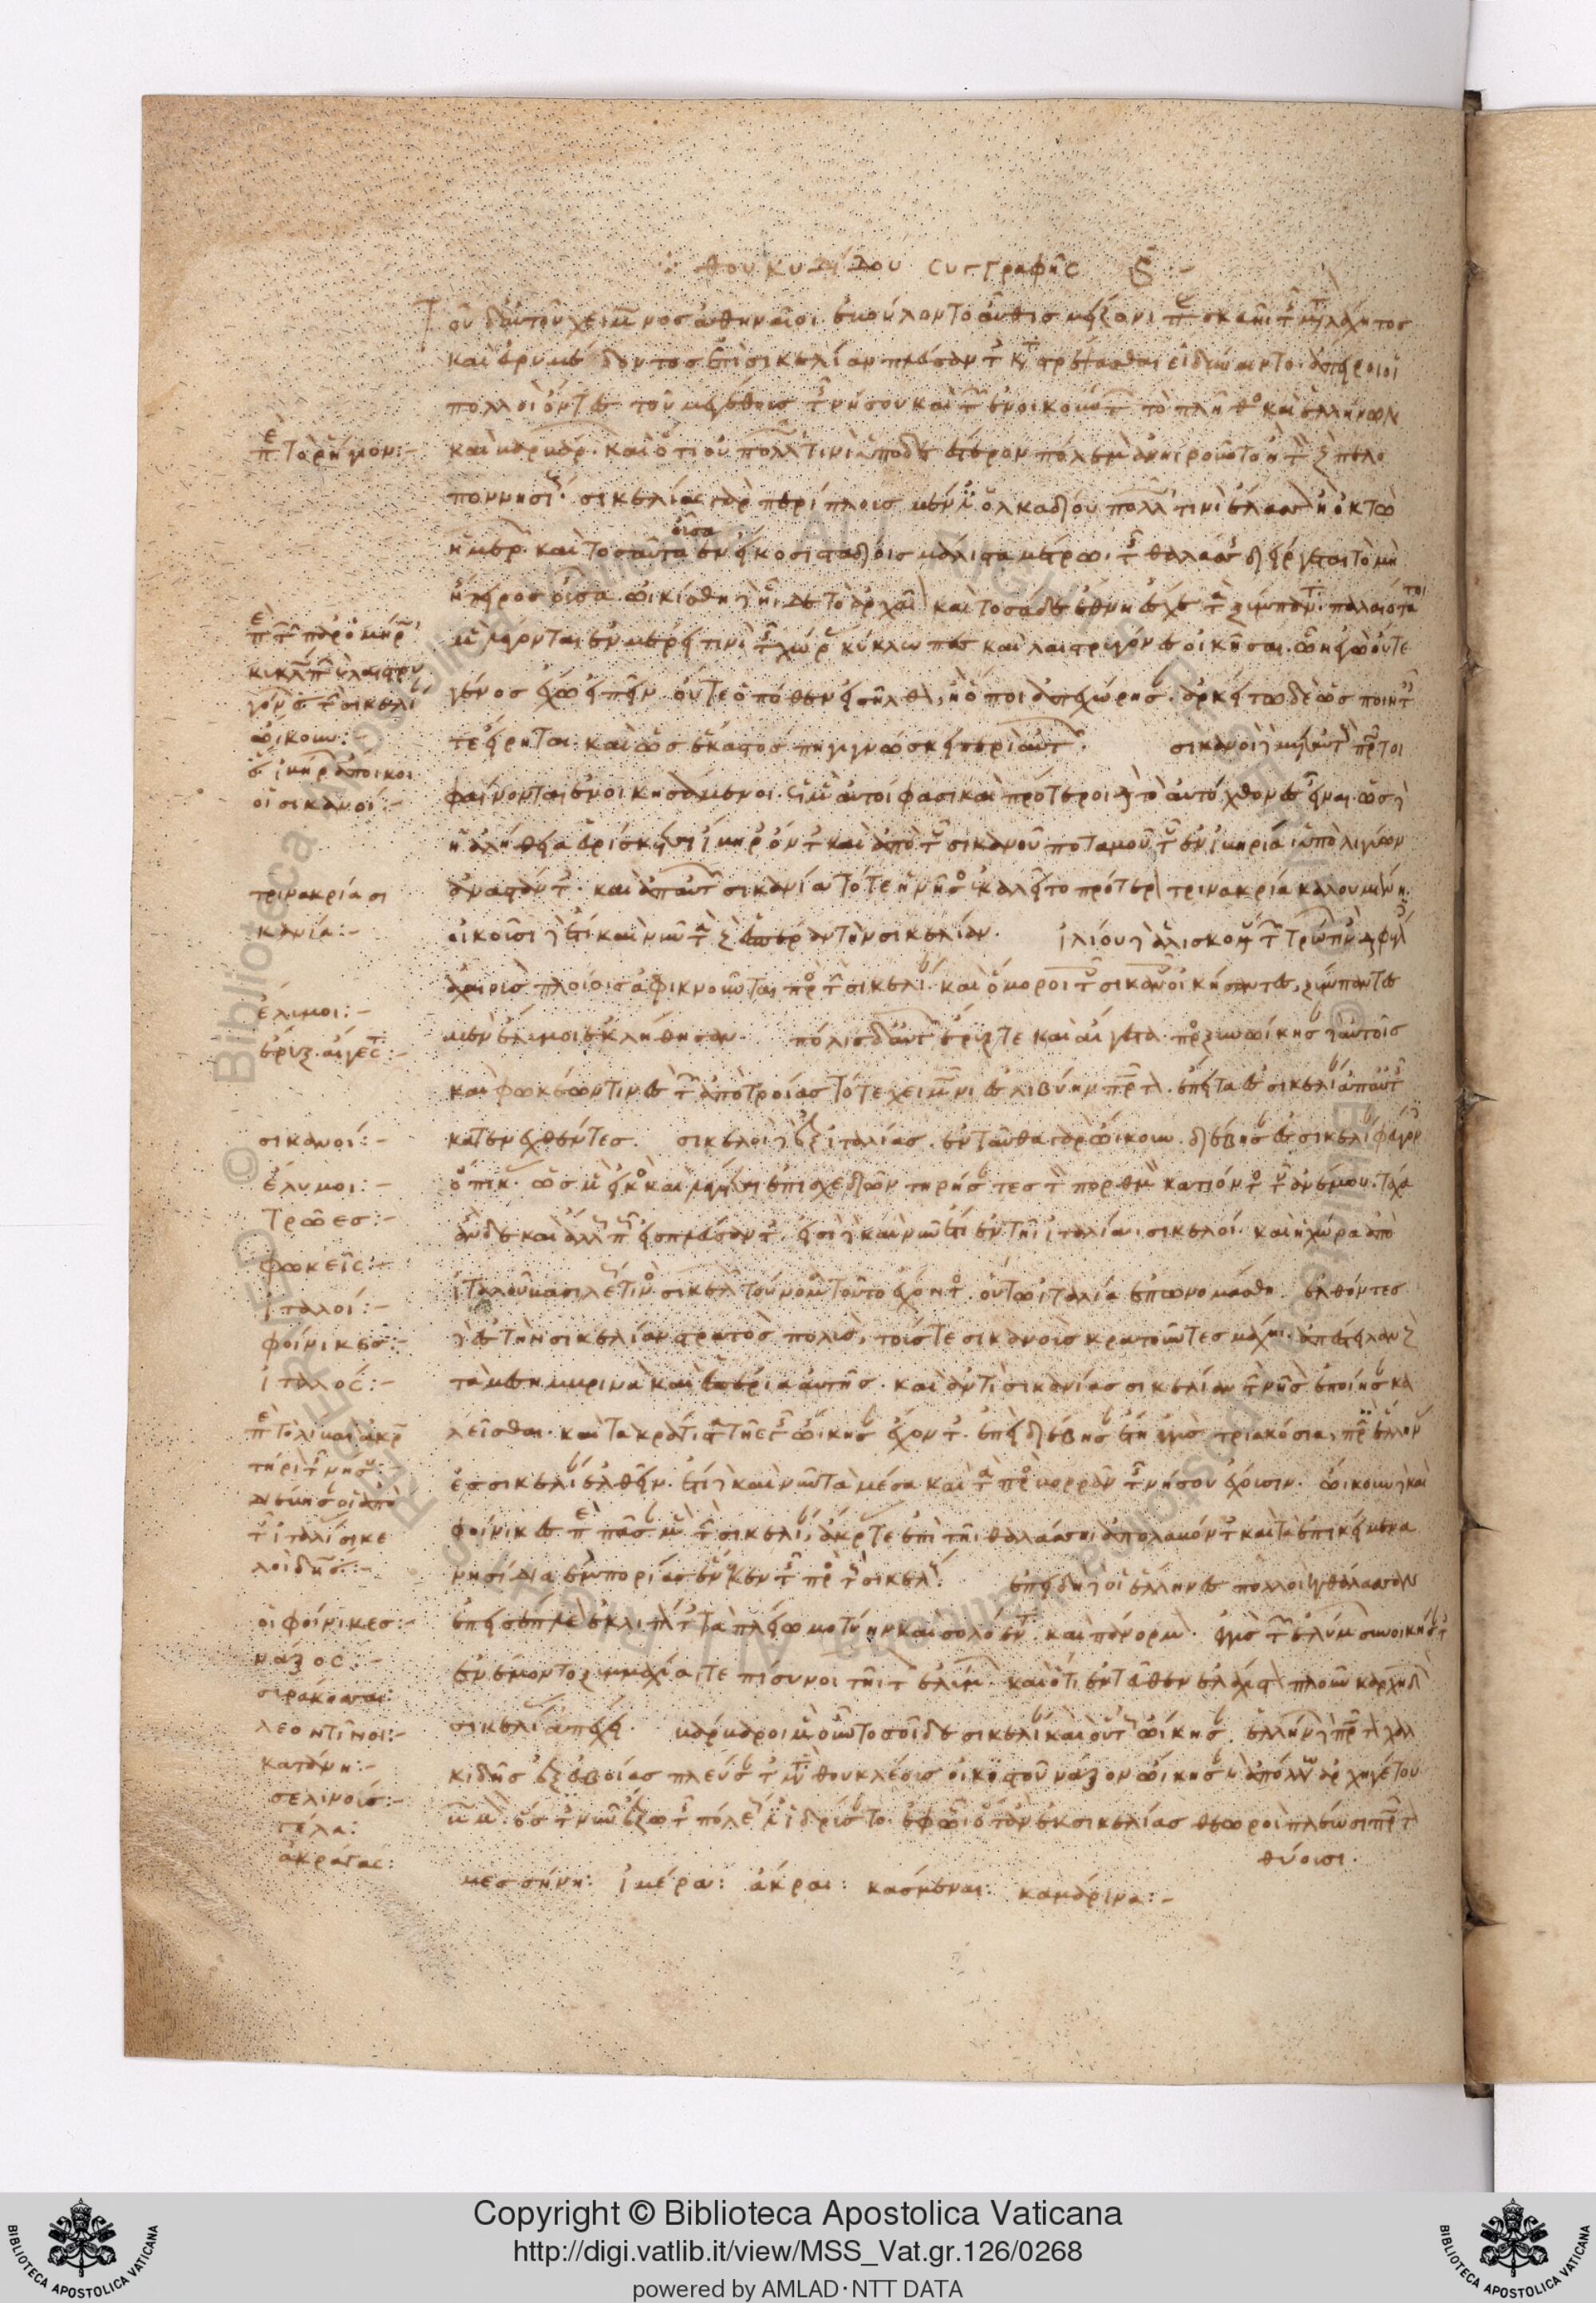 θουκυδίδου συγγραφῆς
τοῦ δ' αὐτοῦ χειμῶνος ἀθηναῖοι ἐβούλοντο αὖθις μείζονι παρασκευῆι τῆς μετὰ λάχητος
καὶ εὐρυμέδοντος ἐπὶ σικελίαν πλεύσαντες καταστρέψασθαι εἰ δύναιντο. ἄπειροι οἱ
πολλοὶ ὄντες τοῦ μεγέθους τῆς νήσου καὶ τῶν ἐνοικούντων τὸ πλῆθος καὶ ἑλλήνων
καὶ βαρβάρων. καὶ ὅτι οὐ πολλῶ τινὶ ὑποδεέστερον πόλεμον ἀνηροῦντο ἢ τὸν πρὸς πελο
ποννησίους. σικελίας γὰρ περίπλους μέν ἐστιν ὁλκάδι οὐ πολλῶ τινὶ ἔλασσον ἢ ὀκτὼ
ἡμερῶν. καὶ τοσαύτη οὖσα ἐν εἴκοσι σταδίοις μάλιστα μέτρω τῆς θαλάσσης διείργεται τὸ μὴ
ἤπειρος οὖσα. ὠικίσθη δὲ ὧδε τὸ ἀρχαῖον καὶ τοσάδε ἔθνη ἔσχε τὰ ξύμπαντα. παλαιότατοι
μὲν λέγονται ἐν μέρει τινὶ τῆς χώρας κύκλωπες καὶ λαιστρυγόνες οἰκῆσαι. ὧν ἐγὼ οὔτε
γένος ἔχω εἰπεῖν οὔτε ὁπόθεν εἰσῆλθον, ἢ ὅποι ἀπεχώρησαν. ἀρκείτω δὲ ὡς ποιηταῖς
τε εἴρηται. καὶ ὡς ἕκαστός πη γιγνώσκει περὶ αὐτῶν. σικανοὶ δὲ μετ' αὐτοὺς πρῶτοι
φαίνονται ἐνοικησάμενοι. ὡς μὲν αὐτοί φασι καὶ πρότεροι διὰ τὸ αὐτόχθονες εἶναι. ὡς δὲ
ἡ ἀλήθεια εὑρίσκεται ἴβηρες ὄντες καὶ ἀπὸ τοῦ σικανοῦ ποταμοῦ τοῦ ἐν ἰβηρία ὑπὸ λιγύων
ἀναστάντες. καὶ ἀπ' αὐτῶν σικανία τότε ἡ νῆσος ἐκαλεῖτο πρότερον τρινακρία καλουμένη.
οἰκοῦσι δὲ ἔτι καὶ νῦν τὰ πρὸς ἑσπέραν τὴν σικελίαν. ἰλίου δὲ ἁλισκομένου τῶν τρώων τινὲς διαφυγόντες
ἀχαιοὺς πλοίοις ἀφικνοῦνται πρὸς τὴν σικελίαν. καὶ ὅμοροι τοῖς σικανοῖς οἰκήσαντες, ξύμπαντες
μὲν ἔλυμοι ἐκλήθησαν. πόλις δ' αὐτῶν ἔρυξ τε καὶ αἴγεστα. προσξυνώικησαν δὲ αὐτοῖς
καὶ φωκέων τινὲς τῶν ἀπὸ τροίας τότε χειμῶνι ἐς λιβύην πρῶτον. ἔπειτα ἐς σικελίαν ἀπ' αὐτῆς
κατενεχθέντες. σικελοὶ δὲ ἐξ ἰταλίας. ἐνταῦθα γὰρ ὤικουν. διέβησαν ἐς σικελίαν φεύγοντες
ὀπικούς. ὡς μὲν εἰκὸς καὶ λέγεται ἐπὶ σχεδιῶν τηρήσαντες τὸν πορθμὸν κατιόντος τοῦ ἀνέμου. τάχα
ἂν δὲ καὶ ἄλλως πως ἐσπλεύσαντες. εἰσὶ δὲ καὶ νῦν ἔτι ἐν τῆι ἰταλίαι σικελοί. καὶ ἡ χώρα ἀπὸ
ἰταλοῦ βασιλέως τινὸς σικελῶν τοὔνομα τοῦτο ἔχοντος. οὕτως ἰταλία ἐπωνομάσθη. ἐλθόντες
δὲ ἐς τὴν σικελίαν στρατὸς πολὺς, τούς τε σικανοὺς κρατοῦντες μάχηι. ἀπέστειλαν πρὸς
τὰ μεσημβρινὰ καὶ ἑσπέρια αὐτῆς. καὶ ἀντὶ σικανίας σικελίαν τὴν νῆσον ἐποίησαν κα
λεῖσθαι. καὶ τὰ κράτιστα τῆς γῆς ὤικησαν ἔχοντες. ἐπεὶ διέβησαν ἔτη ἐγγὺς τριακόσια, πρὶν ἕλληνας
ἐς σικελίαν ἐλθεῖν. ἔτι δὲ καὶ νῦν τὰ μέσα καὶ τὰ πρὸς βορρᾶν τῆς νήσου ἔχουσιν. ὤικουν δὲ καὶ
φοίνικες περὶ πᾶσαν μὲν τὴν σικελίαν, ἄκρας τε ἐπὶ τῆι θαλάσσηι ἀπολαβόντες καὶ τὰ ἐπικείμενα
νησίδια ἐμπορίας ἕνεκεν τῆς πρὸς τοὺς σικελούς. ἐπειδὴ δὲ οἱ ἕλληνες πολλοὶ κατὰ θάλασσαν
ἐπεσέπλεον ἐκλιπόντες τὰ πλείω μοτύην καὶ σολόεντα καὶ πάνορμον. ἐγγὺς τῶν ἐλύμων συνοικήσαντες
ἐνέμοντο ξυμμαχία τε πίσυνοι τῆι τῶν ἐλύμων. καὶ ὅτι ἐντεῦθεν ἐλάχιστον πλοῦν καρχηδὼν
σικελίας ἀπέχει. βάρβαροι μὲν οὖν τοσοίδε σικελίαν καὶ οὕτως ὤικησαν. ἑλλήνων δὲ πρῶτοι χαλ
κιδῆς ἐξ εὐβοίας πλεύσαντες μετὰ θουκλέους οἰκιστοῦ νάξον ὤικησαν καὶ ἀπόλλωνος ἀρχηγέτου
βωμὸν. ὅστις νῦν ἔξω τῆς πόλεώς ἐστιν ἱδρύσαντο. ἐφ' ὧι ὅταν ἐκ σικελίας θεωροὶ πλέωσι πρῶτον
θύουσι.
μεσσήνη: ἱμέρα: ἄκραι: κασμέναι: καμάρινα:-
ἔλιμοι:-
σικανοί:-
ἔλυμοι:-
Τρῶες:-
φωκεῖς:-
ἰταλοί:-
φοίνικες:-
ἰταλός:-
οἱ φοίνικες:-
νάξος:-
λεοντῖνοι:-
κατάνη:-
σελινούς:-
γέλα:
ἀκράγας:
Copyright © Biblioteca Apostolica Vaticana
http://digi.vatlib.it/view/MSS_Vat.gr.126/0268
powered by AMLAD·NTT DATA
BIBLIOTECA APOSTOLICA VATICANA
BIBLIOTECA APOSTOLICA VATICANA